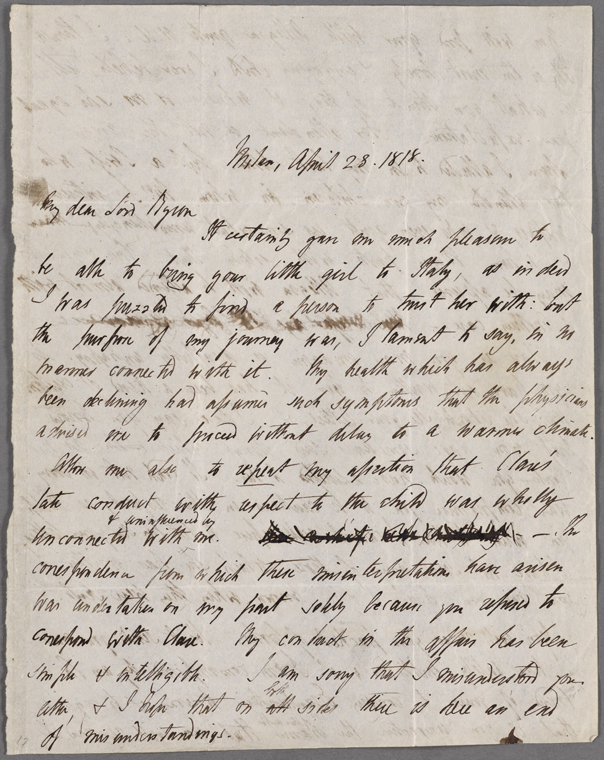 Milan, April 28. 1818.
My dear Lord Byron
It certainly gave me much pleasure to
be able to bring your little girl to Italy, as indeed
I was puzzled to find a person to trust her with: but
the purpose of my journey was, I lament to say, in no
manner connected with it. My health which has always
been declining had assumed such symptoms that the physicians
advised me to proceed without delay to a warmer climate.
Allow me also to repeat my assertion that Clare's
late conduct with respect to the child was wholly
& uninfluenced by
unconnected with me. — . The
correspondence from which these misinterpretations have arisen
was undertaken on my part solely because you refused to
correspond with Clare. My conduct in the affair has been
simple & intelligible. I am sorry that I misunderstood your
letter & I hope that on both sides there is here an end
of misunderstandings.